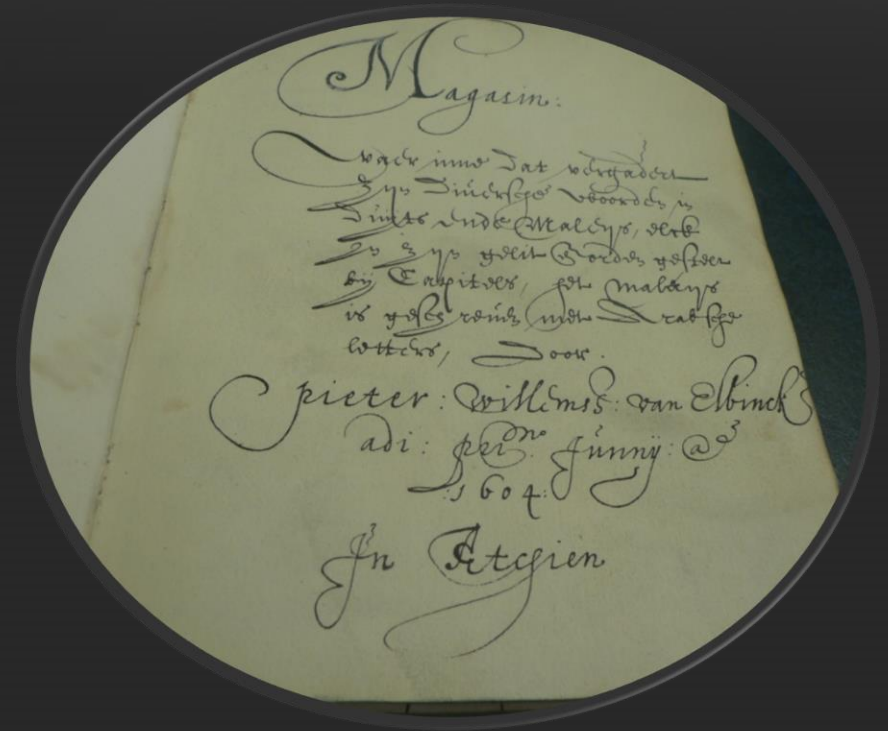 Magasin:
waer inne dat vergadert
zyn Diuersche woorden in
Duits ende Maleijs, elck
in zyn gelit Gorden gestelt
bij Capitels, het maleijs
is geschreuen met Arabsche
letters, Door.
pieter: willemsz: van Elbinck
adi: primo: Junny: ao
:1604:
In Atchien